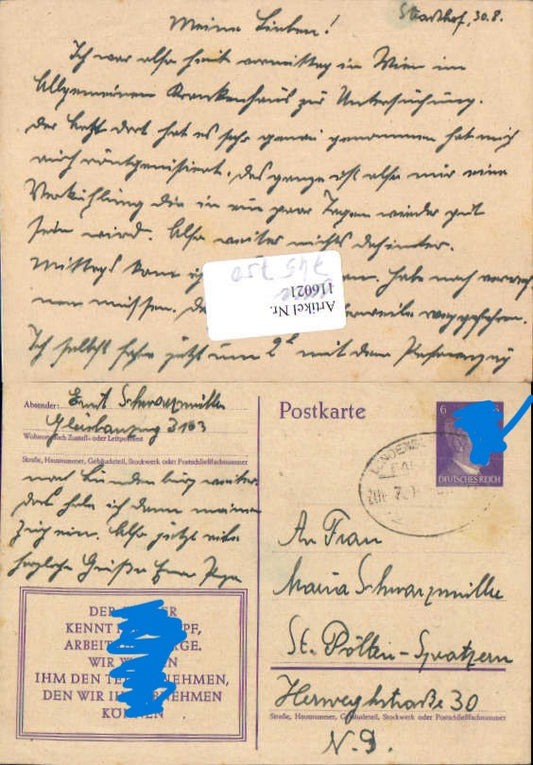 Stadlhof, 30.8.
Meine Lieben!
Ich war also heute vormittag in Wien im
Allgemeinen Krankenhaus zur Untersuchung.
Der Arzt dort hat es sehr genau genommen hat mich
auch röntgenisiert. Das ganze ist also nur eine
Verkühlung die in ein paar Tagen wieder gut
sein wird. Also weiter nichts dahinter.
Mittags kam ich
habe noch
müssen. weggefahren.
Ich selbst fahre jetzt um 2 mit dem Personenzug
745 750
Artikel Nr.
116021
Absender: Ernst Schwarzmüller
3103
Wohnort, auch Zustell- oder Leitpostamt
Straße, Hausnummer, Gebäudeteil, Stockwerk oder Postschließfachnummer
nach Lundenburg weiter.
Dort habe ich dann meinen
Zug ein. Also jetzt viele
herzliche Grüße Euer Papa
DER
KENNT PF,
ARBEIT RGE.
WIR
IHM DEN NEHMEN,
DEN WIR IHM NEHMEN
KÖNNEN
Postkarte
6
DEUTSCHES REICH
An Frau
Maria Schwarzmüller
St. Pölten-Spratzern
Herweghstraße 30
Straße, Hausnummer, Gebäudeteil, Stockwerk oder Postschließfachnummer
N.D.